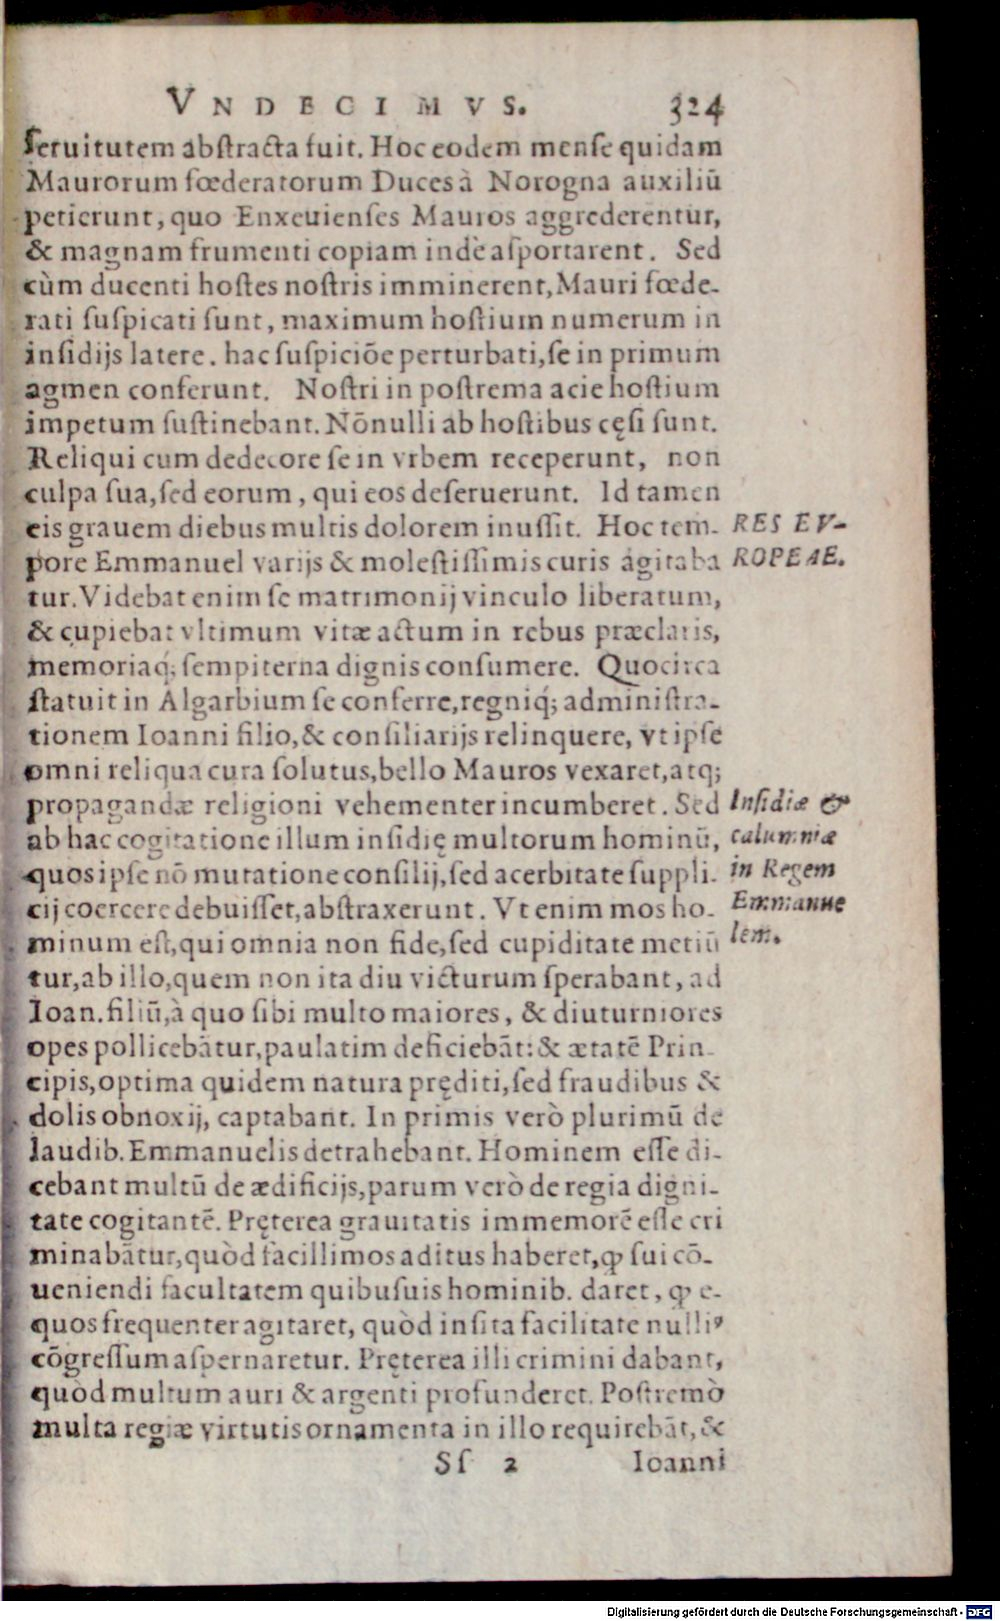 VNDECIMVS. 324
ſeruitutem abſtracta fuit. Hoc eodem menſe quidam
Maurorum fœderatorum Duces à Norogna auxiliũ
petierunt, quo Enxeuienſes Mauros aggrederentur,
& magnam frumenti copiam inde aſportarent. Sed
cùm ducenti hoſtes noſtris imminerent, Mauri fœde-
rati ſuſpicati ſunt, maximum hoſtium numerum in
inſidijs latere. hac ſuſpiciõe perturbati, ſe in primum
agmen conferunt. Noſtri in poſtrema acie hoſtium
impetum ſuſtinebant. Nõnulli ab hoſtibus cęſi ſunt.
Reliqui cum dedecore ſe in vrbem receperunt, non
culpa ſua, ſed eorum, qui eos deſeruerunt. Id tamen
eis grauem diebus multis dolorem inuſſit. Hoc tem-
RES EV-
pore Emmanuel varijs & moleſtiſſimis curis agitaba
ROPEAE.
tur. Videbat enim ſe matrimonij vinculo liberatum,
& cupiebat vltimum vitæ actum in rebus præclaris,
memoriaq́; ſempiterna dignis conſumere. Quocirca
ſtatuit in Algarbium ſe conferre, regniq́; adminiſtra-
tionem Ioanni filio, & conſiliarijs relinquere, vt ipſe
omni reliqua cura ſolutus, bello Mauros vexaret, atq;
propagandæ religioni vehementer incumberet. Sed
Inſidiæ &
ab hac cogitatione illum inſidię multorum hominũ,
calumniæ
quos ipſe nõ mutatione conſilij, ſed acerbitate ſuppli-
in Regem
cij coercere debuiſſet, abſtraxerunt. Vt enim mos ho-
Emmanue
minum eſt, qui omnia non fide, ſed cupiditate metiũ
lem.
tur, ab illo, quem non ita diu victurum ſperabant, ad
Ioan. filiũ, à quo ſibi multo maiores, & diuturniores
opes pollicebãtur, paulatim deficiebãt: & ætatẽ Prin-
cipis, optima quidem natura pręditi, ſed fraudibus &
dolis obnoxij, captabant. In primis verò plurimũ de
laudib. Emmanuelis detrahebant. Hominem eſſe di-
cebant multũ de ædificijs, parum verò de regia digni-
tate cogitantẽ. Pręterea grauitatis immemorẽ eſſe cri
minabãtur, quòd facillimos aditus haberet, ꝙ ſui cõ-
ueniendi facultatem quibuſuis hominib. daret, ꝙ e-
quos frequenter agitaret, quòd inſita facilitate nulliꝰ
cõgreſſum aſpernaretur. Pręterea illi crimini dabant,
quòd multum auri & argenti profunderet. Poſtremò
multa regiæ virtutis ornamenta in illo requirebãt, &
Sſ 2 Ioanni
Digitalisierung gefördert durch die Deutsche Forschungsgemeinschaft - DFG